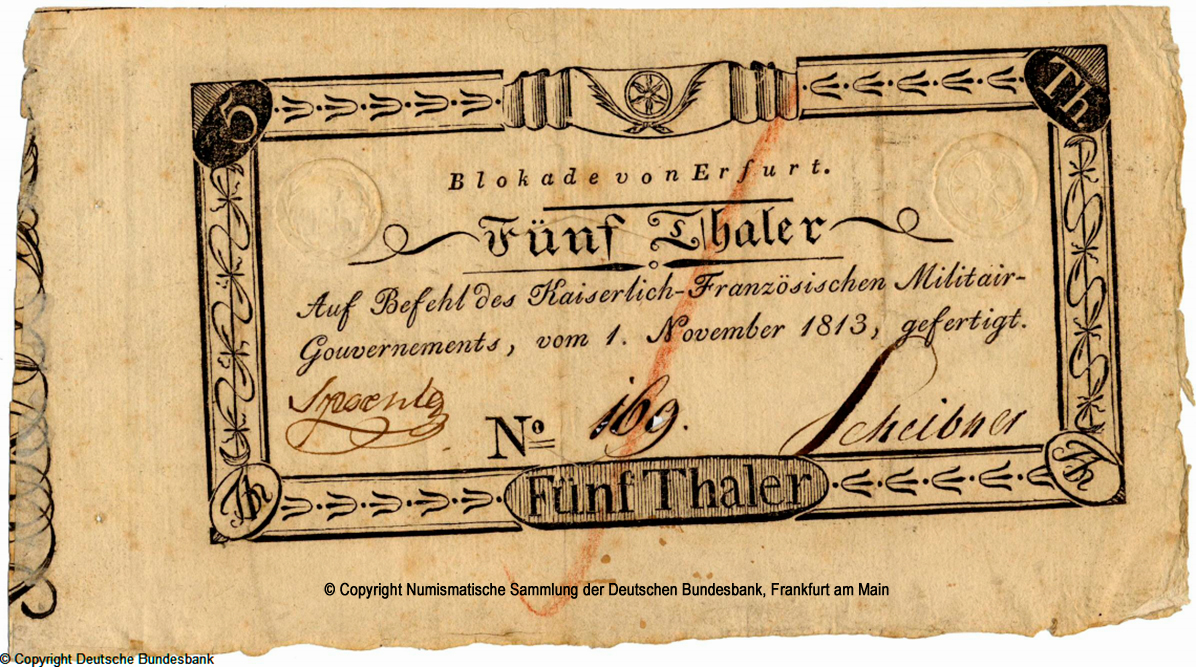 5
Th
Blokade von Erfurt.
Fünf Thaler
Auf Befehl des Kaiserlich-Französischen Militair-
Gouvernements, vom 1. November 1813, gefertigt.
No. 169.
Scheibner
Th
Fünf Thaler
Th
© Copyright Numismatische Sammlung der Deutschen Bundesbank, Frankfurt am Main
© Copyright Deutsche Bundesbank